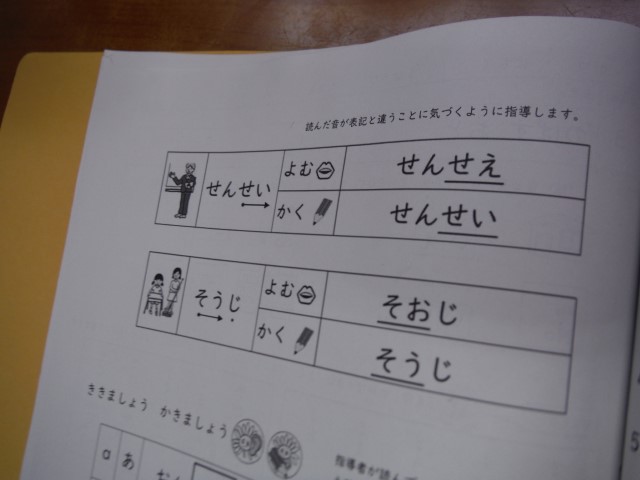 読んだ音が表記と違うことに気づくように指導します。
せんせい
よむ
せんせえ
かく
せんせい
そうじ
よむ
そおじ
かく
そうじ
ききましょう かきましょう
指導者が読んで
a
あ